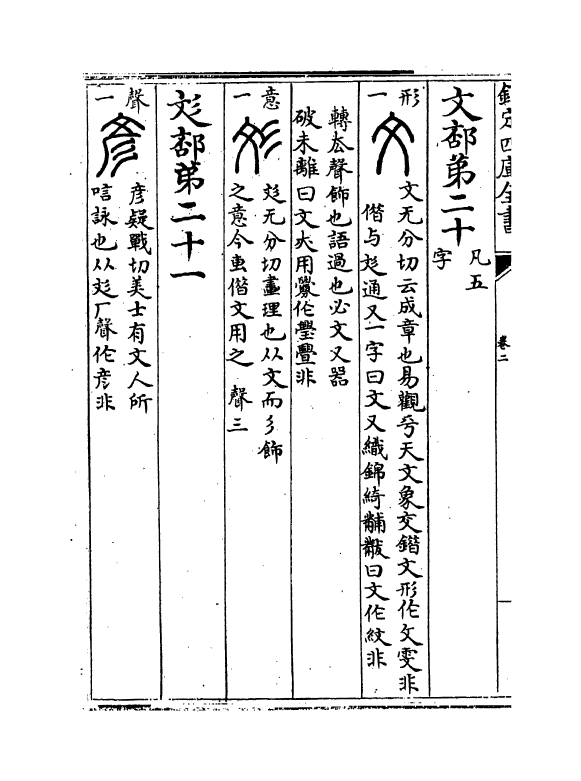 欽定四庫全書
卷二
文部第二十
凡五
字
形一
文无分切云成章也易觀乎天文象交鍇文形作彣雯非
偕与彣通又一字曰文又織錦綺黼黻曰文作紋非
轉去聲飾也語過也必文又器
破未離曰文大用爂作璺舋非
意一
彣无分切畫理也从文而彡飾
之意今重偕文用之 聲三
彣部第二十一
聲一
彥疑戰切美士有文人所
唁詠也从彣厂聲作彦非